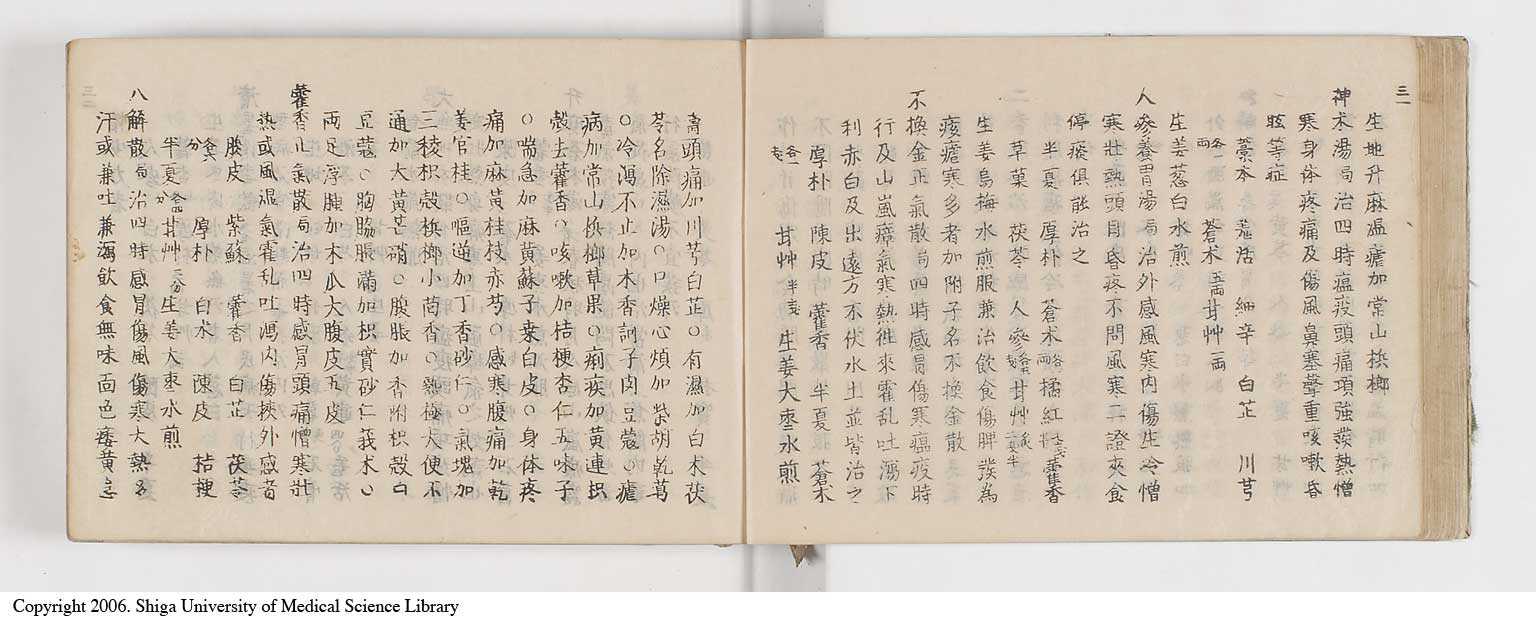 三一
生地升麻温瘧加常山梹榔
神术湯局治四時瘟疫頭痛項強發熱憎
寒身体疼痛及傷風鼻塞聲重咳嗽昏
眩等症
藁本 羌活 細辛 白芷 川芎
各一両 蒼术五両 甘艸一両
生姜葱白水煎
人參養胃湯局治外感風寒内傷生冷憎
寒壯熱頭目昏疼不問風寒二證夾食
停痰俱能治之
半夏 厚朴 蒼术各一両 橘紅 藿香
草菓 茯苓 人參 甘艸
生姜烏梅水煎服兼治飲食傷脾發為
痎瘧寒多者加附子名不換金散
不換金正氣散局四時感冐傷寒瘟疫時
行及山嵐瘴氣寒熱徃來霍乱吐瀉下
利赤白及出遠方不伏水土並皆治之
厚朴 陳皮 藿香 半夏 蒼术
各一戔 甘艸半戔 生姜大枣水煎
壽頭痛加川芎白芷○有濕加白术茯
苓名除濕湯○口燥心煩加柴胡乾葛
○冷瀉不止加木香訶子肉豆蔻○瘧
病加常山梹榔草果○痢疾加黄連枳
殻去藿香○咳嗽加桔梗杏仁五味子
○喘急加麻黄蘇子桒白皮○身体疼
痛加麻黄桂枝赤芍○感寒腹痛加乾
姜官桂○嘔逆加丁香砂仁○氣塊加
三稜枳殻梹榔小茴香○熱極大便不
通加大黄芒硝○腹脹加香附枳殻白
豆蔻○胸脇脹満加枳實砂仁莪术○
両足浮腫加木瓜大腹皮五皮
藿香正氣散局治四時感冐頭痛憎寒壯
熱或風温氣霍乱吐瀉内傷挾外感者
腹皮 紫蘇 藿香 白芷 茯苓
厚朴 白术 陳皮 桔梗
半夏 甘艸 生姜大枣水煎
八解散局治四時感冐傷風傷寒大熱名
汗或兼吐兼瀉飲食無味面色痿黄言
三二